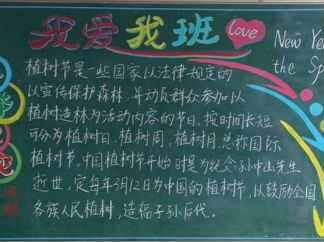 我爱我班 love
New Yea
the Sp
植树节是一些国家以法律规定的
以宣传保护森林,并动员群众参加以
植树造林为活动内容的节日,按时间长短
可分为植树日、植树周、植树月,总称国际
植树节。中国植树节开始时是为纪念孙中山先生
逝世,定每年3月12日为中国的植树节,以鼓励全国
各族人民植树,造福子孙后代。